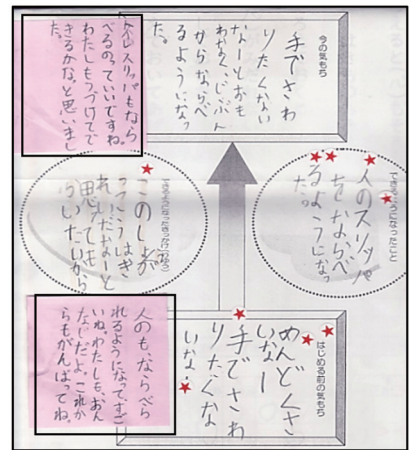 今の気もち
手でさわ
りたくない
なーとおも
わなく、じぶん
からならべ
るようになっ
た。
人のスリッパもなら
べるのっていいですね。
わたしもつづけてで
きるかな。と思いまし
た。
できるようになったこと
人のスリッパ
をならべ
るようになっ
た。
できるようになったきっかけ(りゆう)
れいだなーと
思っても
らいたいから
はじめる前の気もち
めんどくさ
いなー
手でさわ
りたくな
いな。
人のもならべら
れるようになって、すご
いね。わたしも、おん
なじだよ。これか
らもがんばってね。